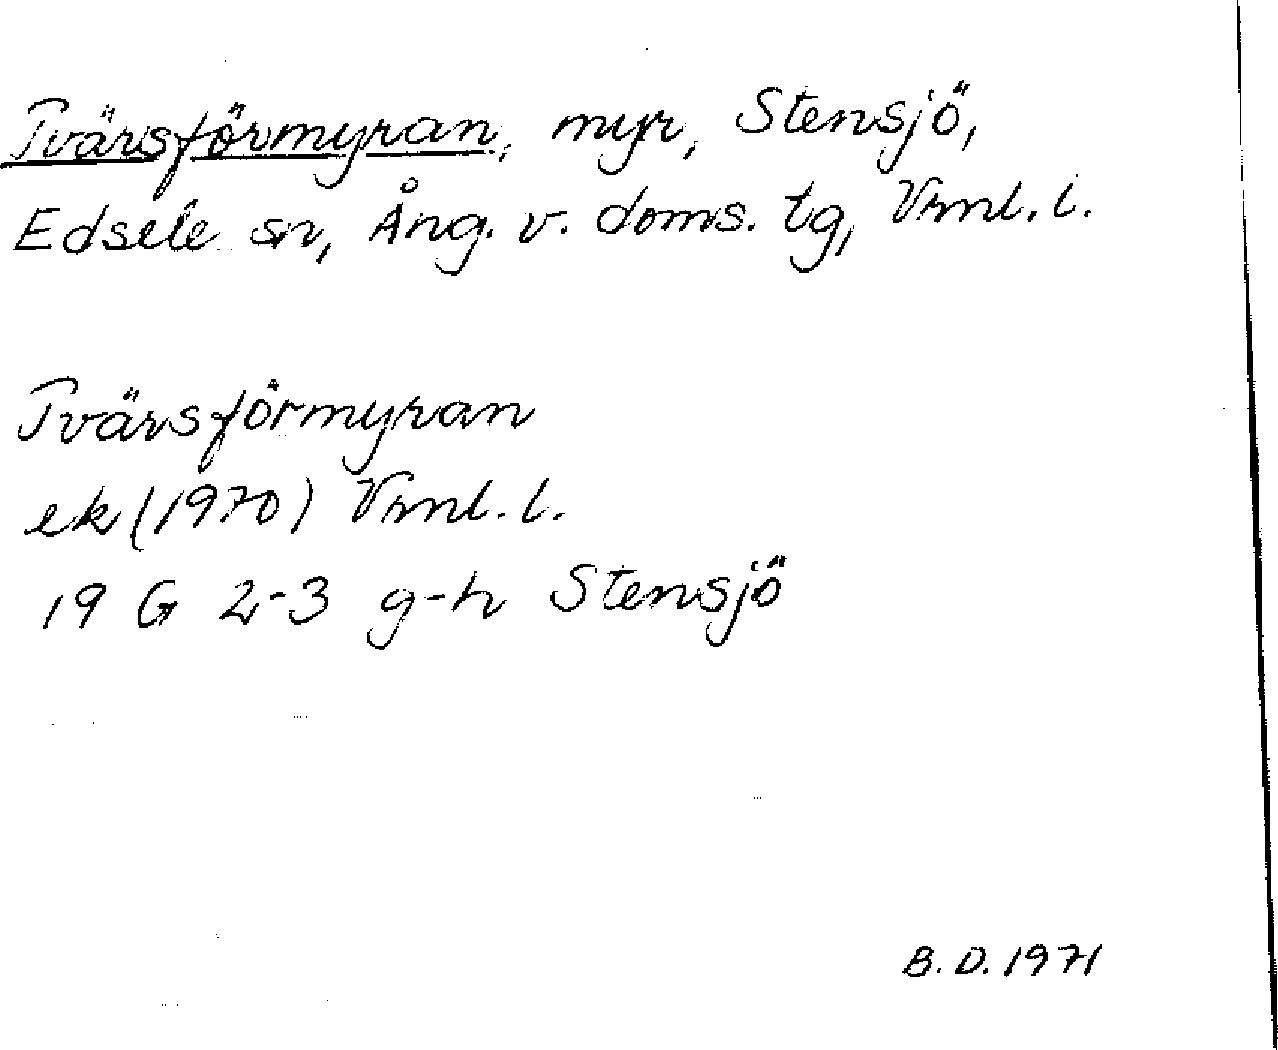 Tvärsförmyran, myr, Stensjö,
Edsele sn, Ång. v. doms. tg, Vrml. l.
Tvärsförmyran
ek (1970) Vrml. l.
19 G 2-3 g-h Stensjö
B. D. 1971